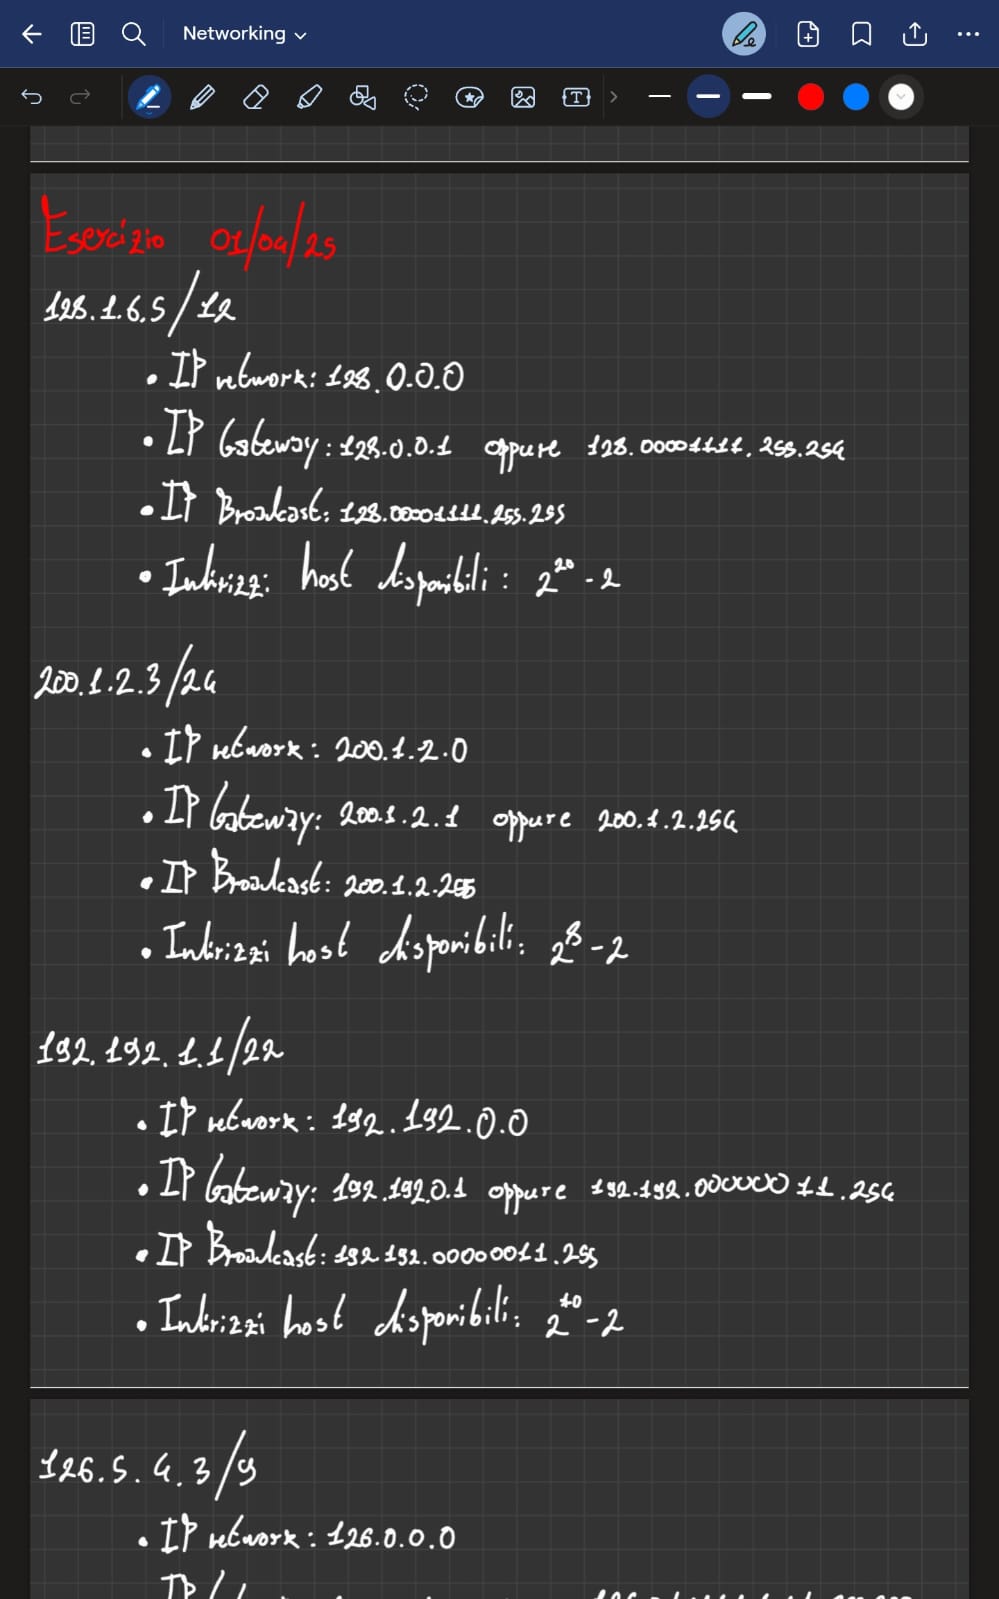 Networking
Esercizio 01/04/25
128.1.6.5/12
• IP network: 128.0.0.0
• IP Gateway: 128.0.0.1 oppure 128.00001111.255.254
• IP Broadcast: 128.00001111.255.255
• Indirizzi host disponibili: 2^20 - 2
200.1.2.3/24
• IP network: 200.1.2.0
• IP Gateway: 200.1.2.1 oppure 200.1.2.254
• IP Broadcast: 200.1.2.255
• Indirizzi host disponibili: 2^8 - 2
192.192.1.1/22
• IP network: 192.192.0.0
• IP Gateway: 192.192.0.1 oppure 192.192.00000011.254
• IP Broadcast: 192.192.00000011.255
• Indirizzi host disponibili: 2^10 - 2
126.5.4.3/9
• IP network: 126.0.0.0